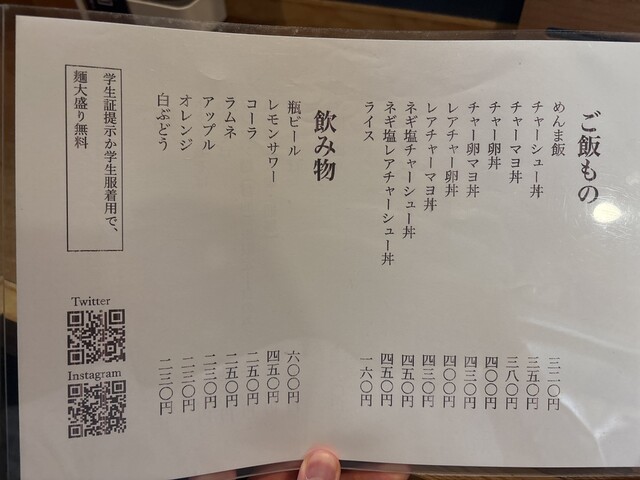 ご飯もの
めんま飯 三二〇円
チャーシュー丼 三五〇円
チャーマヨ丼 三八〇円
チャー卵丼 四〇〇円
チャー卵マヨ丼 四三〇円
レアチャー卵丼 四〇〇円
レアチャーマヨ丼 四三〇円
ネギ塩チャーシュー丼 四五〇円
ネギ塩レアチャーシュー丼 四五〇円
ライス 一六〇円
飲み物
瓶ビール 六〇〇円
レモンサワー 四五〇円
コーラ 二五〇円
ラムネ 二五〇円
アップル 二三〇円
オレンジ 二三〇円
白ぶどう 二三〇円
学生証提示か学生服着用で、
麺大盛り無料
Twitter
Instagram